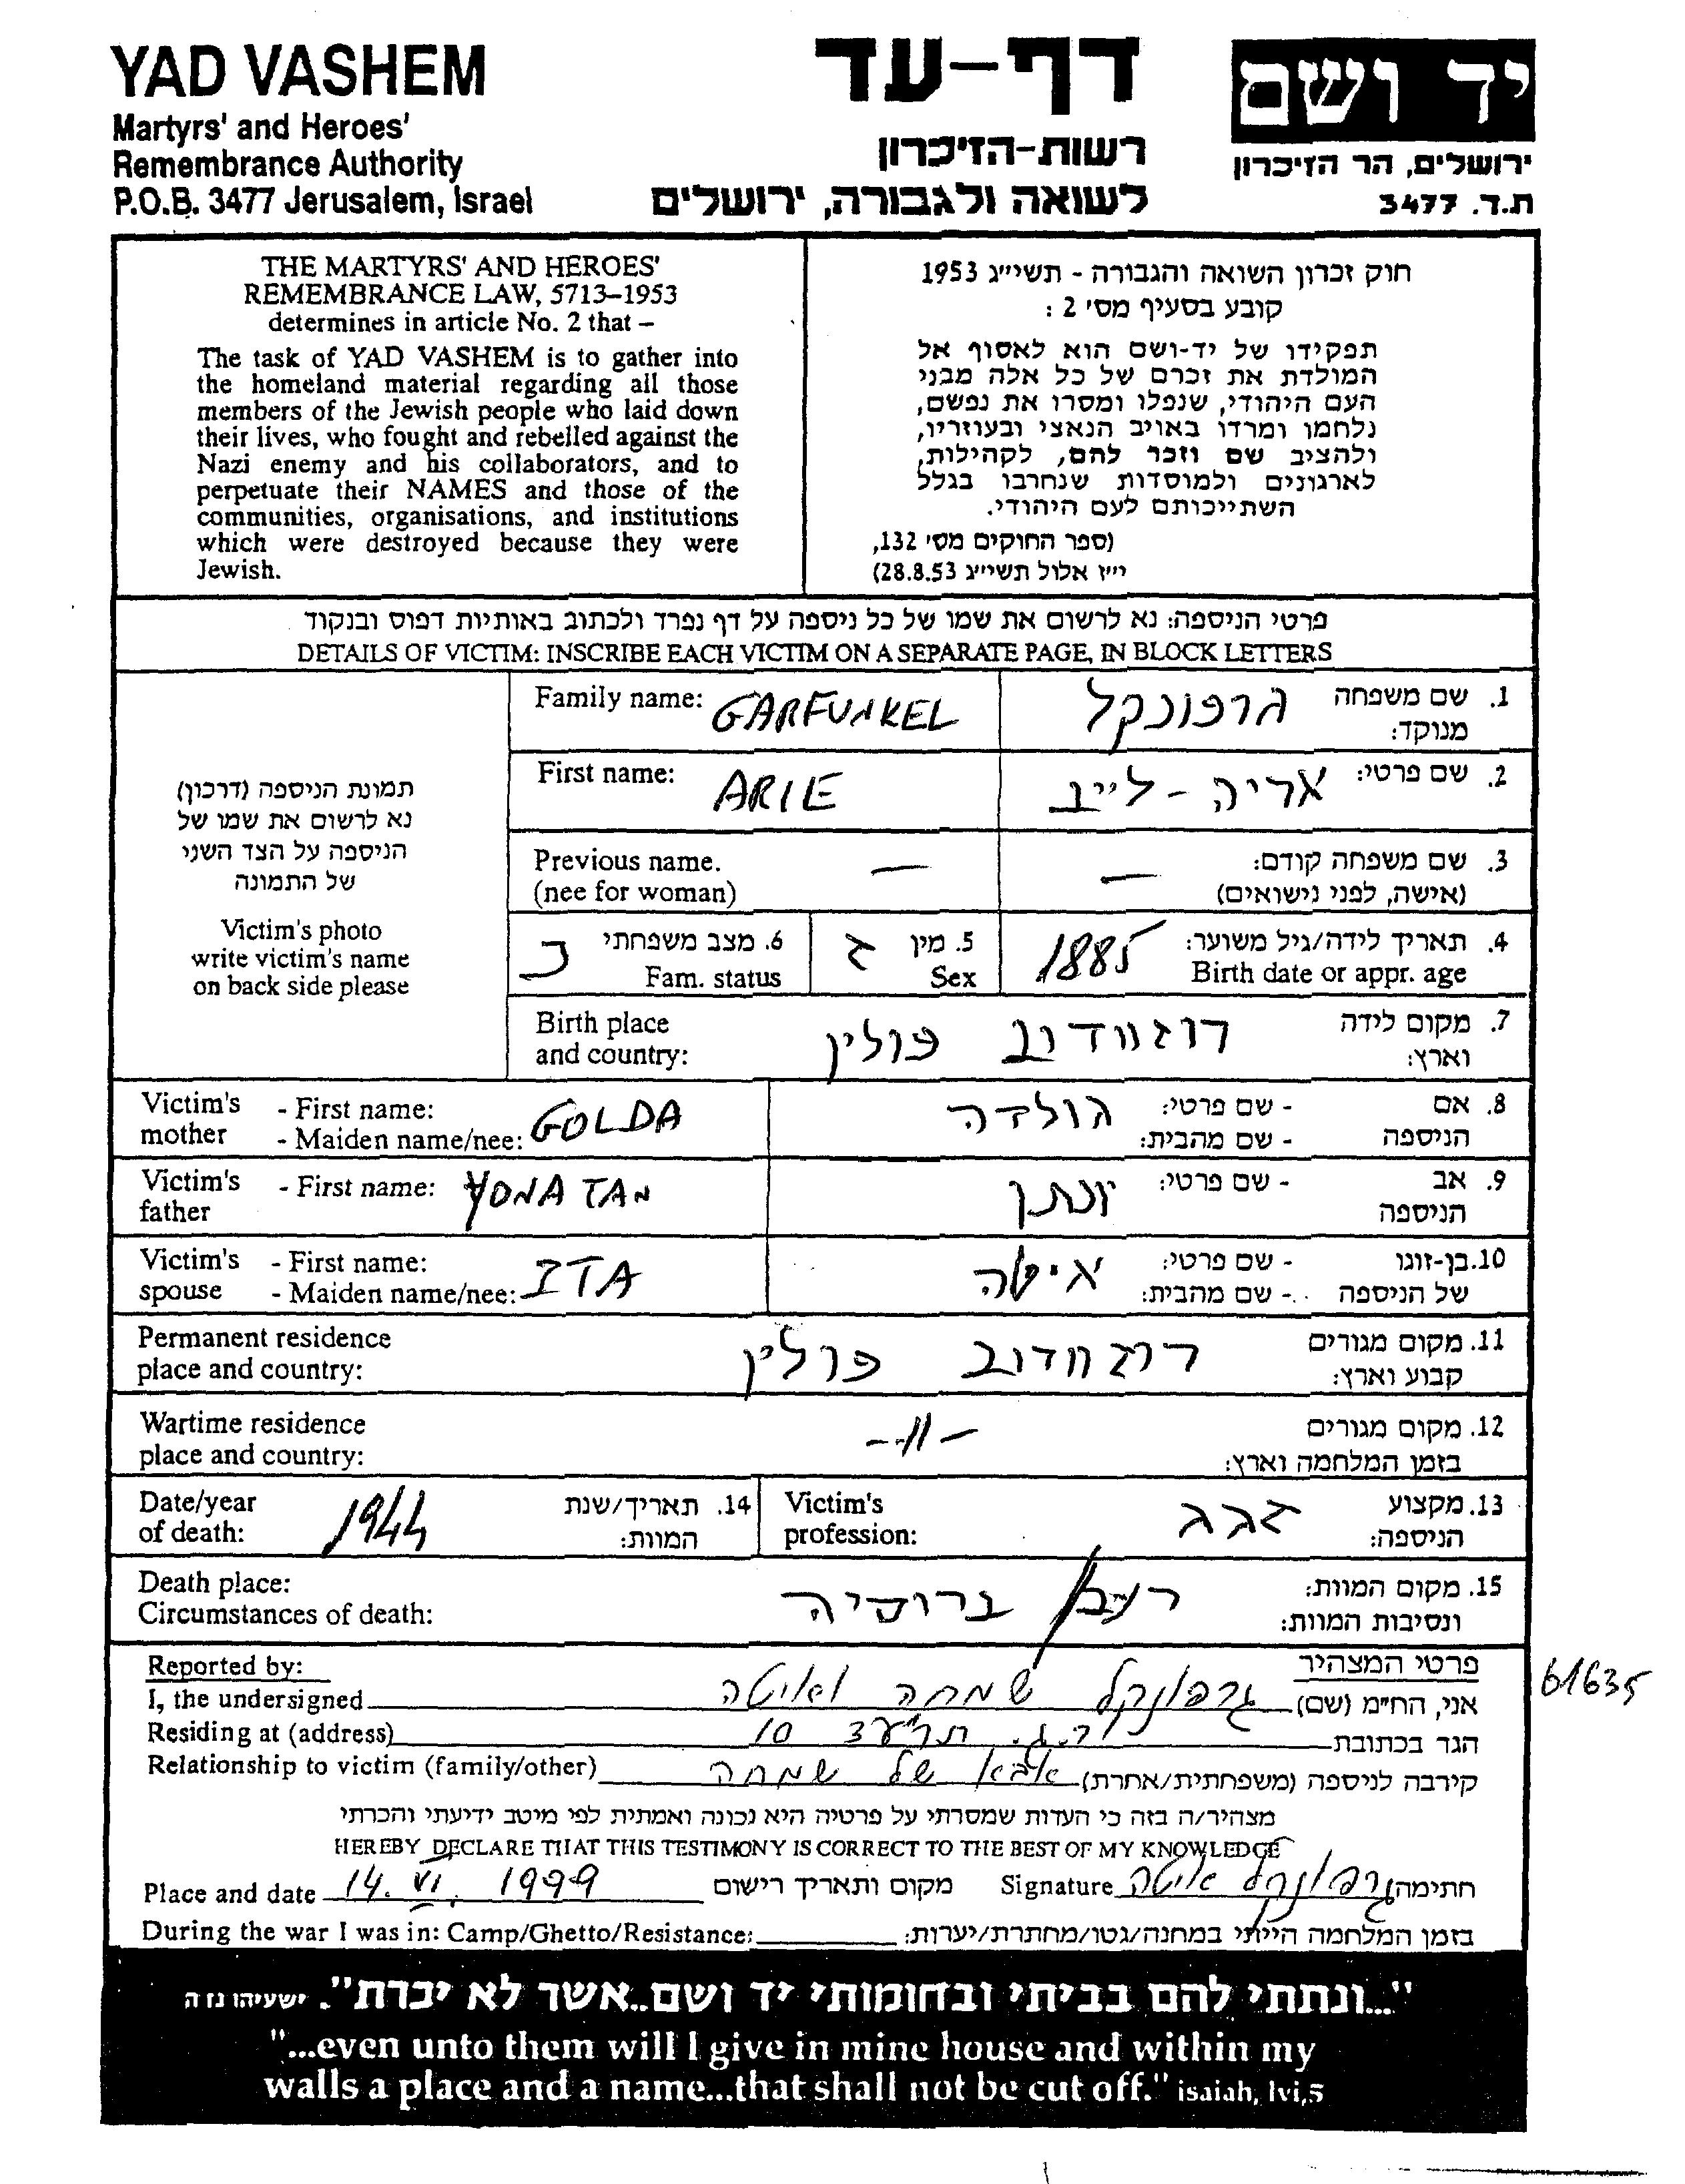 YAD VASHEM
Martyrs' and Heroes'
Remembrance Authority
P.O.B. 3477 Jerusalem, Israel
דף-עד
רשות-הזיכרון
לשואה ולגבורה, ירושלים
יד ושם
ירושלים, הר הזיכרון
ת.ד. 3477
THE MARTYRS' AND HEROES'
REMEMBRANCE LAW, 5713–1953
determines in article No. 2 that –
The task of YAD VASHEM is to gather into
the homeland material regarding all those
members of the Jewish people who laid down
their lives, who fought and rebelled against the
Nazi enemy and his collaborators, and to
perpetuate their NAMES and those of the
communities, organisations, and institutions
which were destroyed because they were
Jewish.
חוק זכרון השואה והגבורה - תשי״ג 1953
קובע בסעיף מס׳ 2 :
תפקידו של יד-ושם הוא לאסוף אל
המולדת את זכרם של כל אלה מבני
העם היהודי, שנפלו ומסרו את נפשם,
נלחמו ומרדו באויב הנאצי ובעוזריו,
ולהציב שם וזכר להם, לקהילות,
לארגונים ולמוסדות שנחרבו בגלל
השתייכותם לעם היהודי.
(ספר החוקים מס׳ 132,
י״ז אלול תשי״ג 28.8.53)
פרטי הניספה: נא לרשום את שמו של כל ניספה על דף נפרד ולכתוב באותיות דפוס ובנקוד
DETAILS OF VICTIM: INSCRIBE EACH VICTIM ON A SEPARATE PAGE, IN BLOCK LETTERS
תמונת הניספה (דרכון)
נא לרשום את שמו של
הניספה על הצד השני
של התמונה
Victim's photo
write victim's name
on back side please
Family name: GARFUNKEL גרפונקל 1. שם משפחה
מנוקד:
First name: ARIE אריה - לייב 2. שם פרטי:
Previous name. — — 3. שם משפחה קודם:
(nee for woman) (אישה, לפני נישואים)
נ 6. מצב משפחתי ז 5. מין 1885 4. תאריך לידה/גיל משוער:
Fam. status Sex Birth date or appr. age
Birth place רוזוודוב פולין 7. מקום לידה
and country: וארץ:
Victim's - First name: GOLDA גולדה - שם פרטי: 8. אם
mother - Maiden name/nee: - שם מהבית: הניספה
Victim's - First name: YONATAN יונתן - שם פרטי: 9. אב
father הניספה
Victim's - First name: ITA איטה - שם פרטי: 10. בן-זוגו
spouse - Maiden name/nee: - שם מהבית: של הניספה
Permanent residence רוזוודוב פולין 11. מקום מגורים
place and country: קבוע וארץ:
Wartime residence -11- 12. מקום מגורים
place and country: בזמן המלחמה וארץ:
Date/year 1944 14. תאריך/שנת Victim's זגג 13. מקצוע
of death: המוות: profession: הניספה:
Death place: רעב ברוסיה 15. מקום המוות:
Circumstances of death: ונסיבות המוות:
Reported by: פרטי המצהיר
I, the undersigned גרפונקל שמחה ואיטה אני, הח״מ (שם) 61635
Residing at (address) ר.ג. תרע״ב 10 הגר בכתובת
Relationship to victim (family/other) אבא של שמחה קירבה לניספה (משפחתית/אחרת)
מצהיר/ה בזה כי העדות שמסרתי על פרטיה היא נכונה ואמתית לפי מיטב ידיעתי והכרתי
HEREBY DECLARE THAT THIS TESTIMONY IS CORRECT TO THE BEST OF MY KNOWLEDGE
Place and date 14. VI. 1999 מקום ותאריך רישום Signature גרפונקל איטה חתימה
During the war I was in: Camp/Ghetto/Resistance: בזמן המלחמה הייתי במחנה/גטו/מחתרת/יערות:
"...ונתתי להם בביתי ובחומותי יד ושם..אשר לא יכרת". ישעיהו נו ה
"...even unto them will I give in mine house and within my
walls a place and a name...that shall not be cut off." isaiah, lvi,5